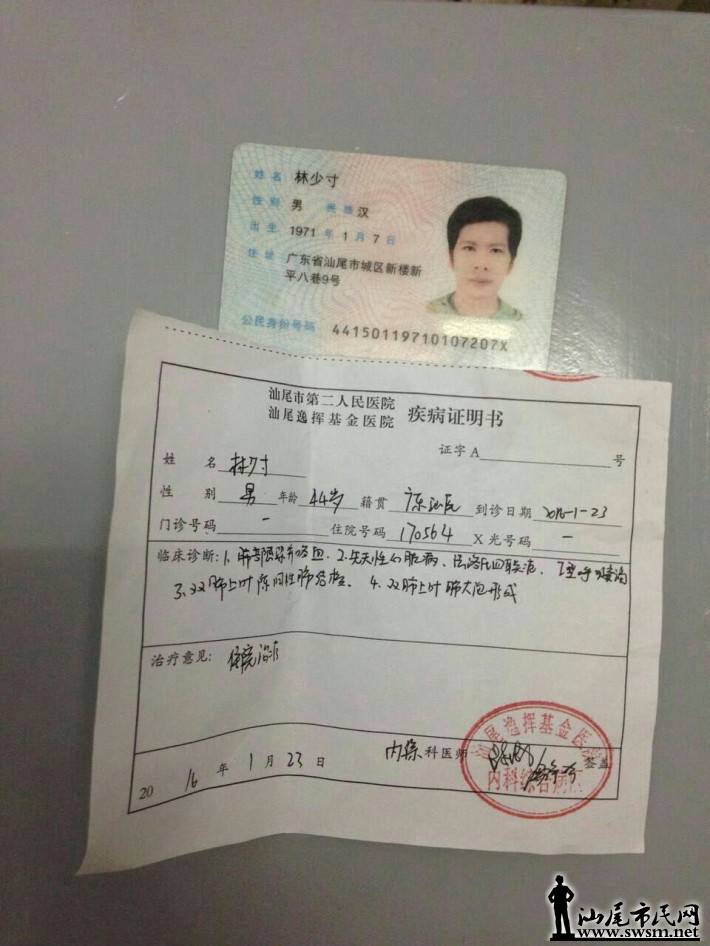 姓名 林少寸
性别 男 民族 汉
出生 1971 年 1 月 7 日
住址 广东省汕尾市城区新楼新
平八巷9号
公民身份号码 44150119710107207X
汕尾市第二人民医院
汕尾逸挥基金医院 疾病证明书
证字A 号
姓名 林少寸
性别 男 年龄 44岁 籍贯 广东汕尾 到诊日期 2016-1-23
门诊号码 - 住院号码 170564 X光号码 -
临床诊断: 1. 肺部感染并咯血. 2. 先天性心脏病、法洛氏四联症. I型呼吸衰竭
3. 双肺上叶陈旧性肺结核. 4. 双肺上叶肺大泡形成
治疗意见: 住院治疗
内综 科医师 签盖
2016 年 1 月 23 日
汕尾逸挥基金医院
内科综合病区
汕尾市民网
www.swsm.net